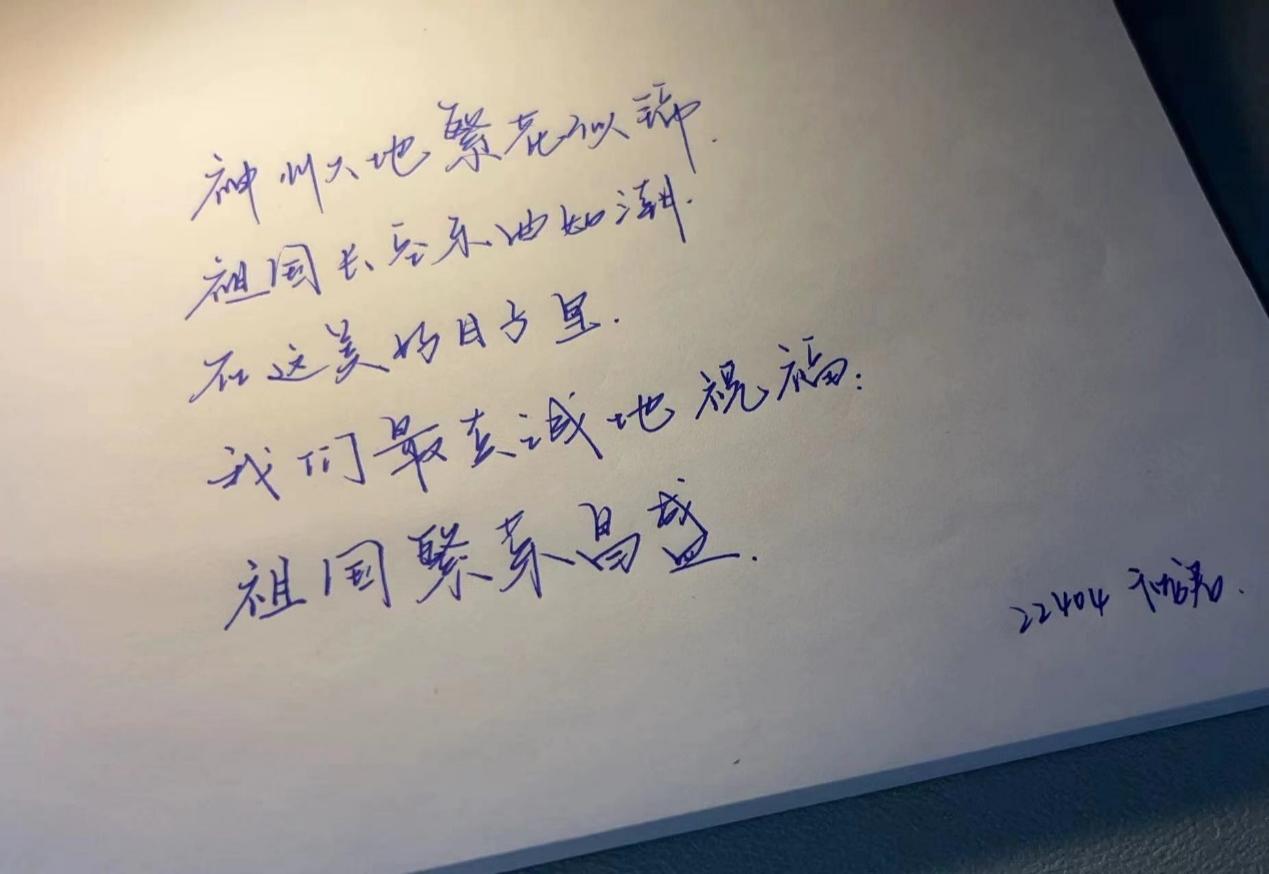 神州大地繁花似锦.
祖国长空乐曲如潮.
在这美好日子里.
我们最真诚地祝福:
祖国繁荣昌盛.
22404